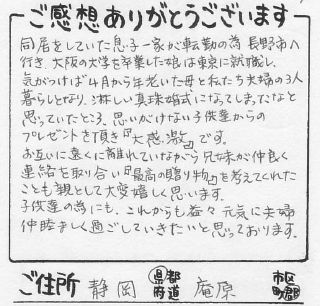 ご感想ありがとうございます
同居をしていた息子一家が転勤の為 長野市へ
行き、大阪の大学を卒業した娘は東京に就職し、
気がつけば4月から年老いた母と私たち夫婦の3人
暮らしとなり、淋しい真珠婚式になってしまったなと
思っていたところ、思いがけない子供達からの
プレゼントを頂き『大感激』です。
お互いに遠くに離れていながら兄妹が仲良く
連絡を取り合い『最高の贈り物』を考えてくれた
ことも親として大変嬉しく思います。
子供達の為にも、これからも益々元気に夫婦
仲睦ましく過ごしていきたいと思っております。
ご住所 静岡 都道府県 庵原 市区町郡